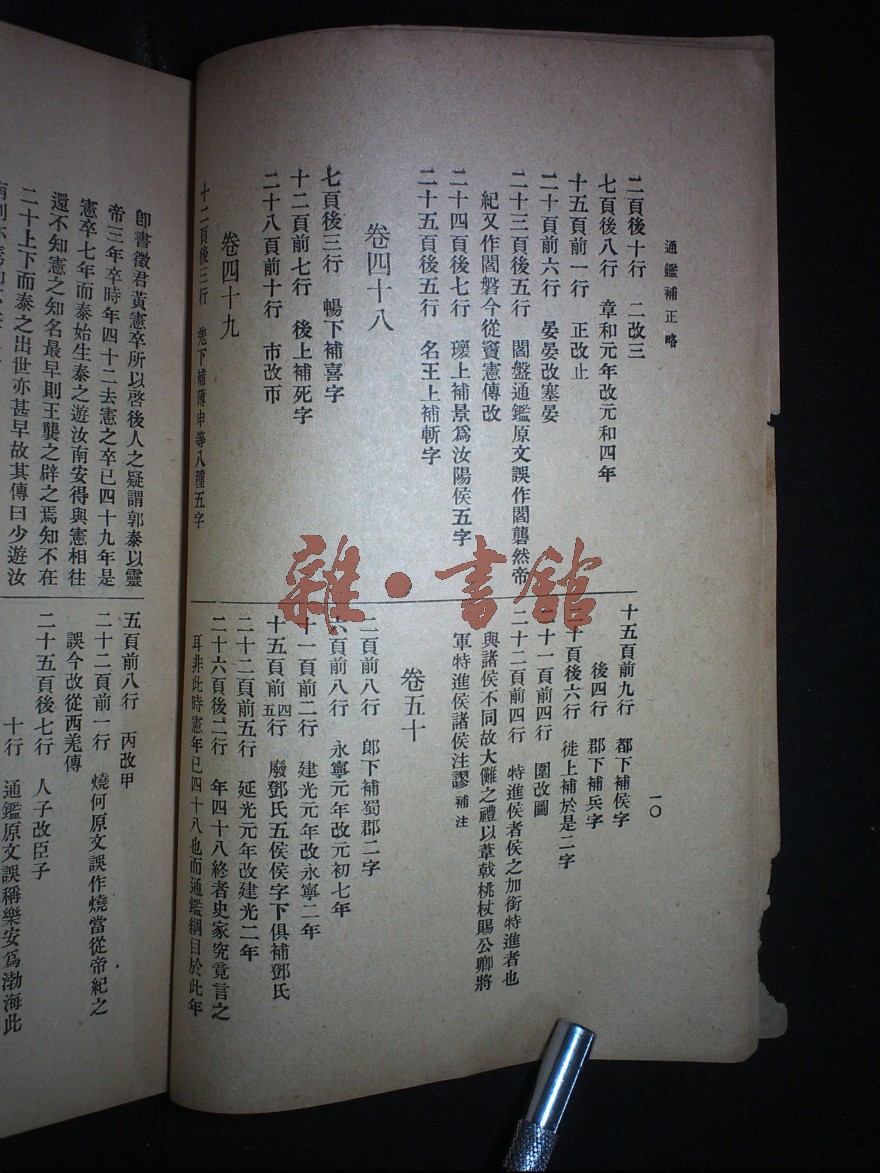 通鑑補正略
一〇
二頁後十行　二改三
七頁後八行　章和元年改元和四年
十五頁前一行　正改止
二十頁前六行　晏晏改塞晏
二十三頁後五行　閻盤通鑑原文誤作閻礱然帝
紀又作閻磐今從竇憲傳改
二十四頁後七行　瓌上補景爲汝陽侯五字
二十五頁後五行　名王上補斬字
卷四十八
七頁後三行　暢下補喜字
十二頁前七行　後上補死字
二十八頁前十行　市改帀
卷四十九
十二頁後三行　羌下補薄申等八種五字
十五頁前九行　都下補侯字
後四行　郡下補兵字
十頁後六行　徙上補於是二字
十一頁前四行　圍改圖
二十二頁前四行　特進侯者侯之加銜特進者也
與諸侯不同故大儺之禮以葦戟桃杖賜公卿將
軍特進侯諸侯注謬補注
卷五十
二頁前八行　郎下補蜀郡二字
六頁前八行　永寧元年改元初七年
十一頁前二行　建光元年改永寧二年
十五頁前四五行　廢鄧氏五侯侯字下俱補鄧氏
二十二頁前五行　延光元年改建光二年
二十六頁後二行　年四十八終者史家究竟言之
耳非此時憲年已四十八也而通鑑綱目於此年
卽書徵君黃憲卒所以啓後人之疑謂郭泰以靈
帝三年卒時年四十二去憲之卒已四十九年是
憲卒七年而泰始生泰之遊汝南安得與憲相往
還不知憲之知名最早則王龔之辟之焉知不在
二十上下而泰之出世亦甚早故其傳曰少遊汝
五頁前八行　丙改甲
二十二頁前一行　燒何原文誤作燒當從帝紀之
誤今改從西羌傳
二十五頁後七行　人子改臣子
十行　通鑑原文誤稱樂安爲渤海此
雜·書館